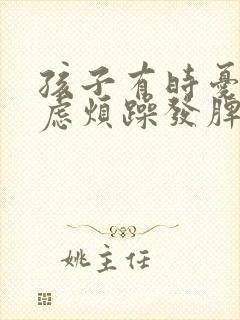 孩子有時憂
慮煩躁發脾
姚主任